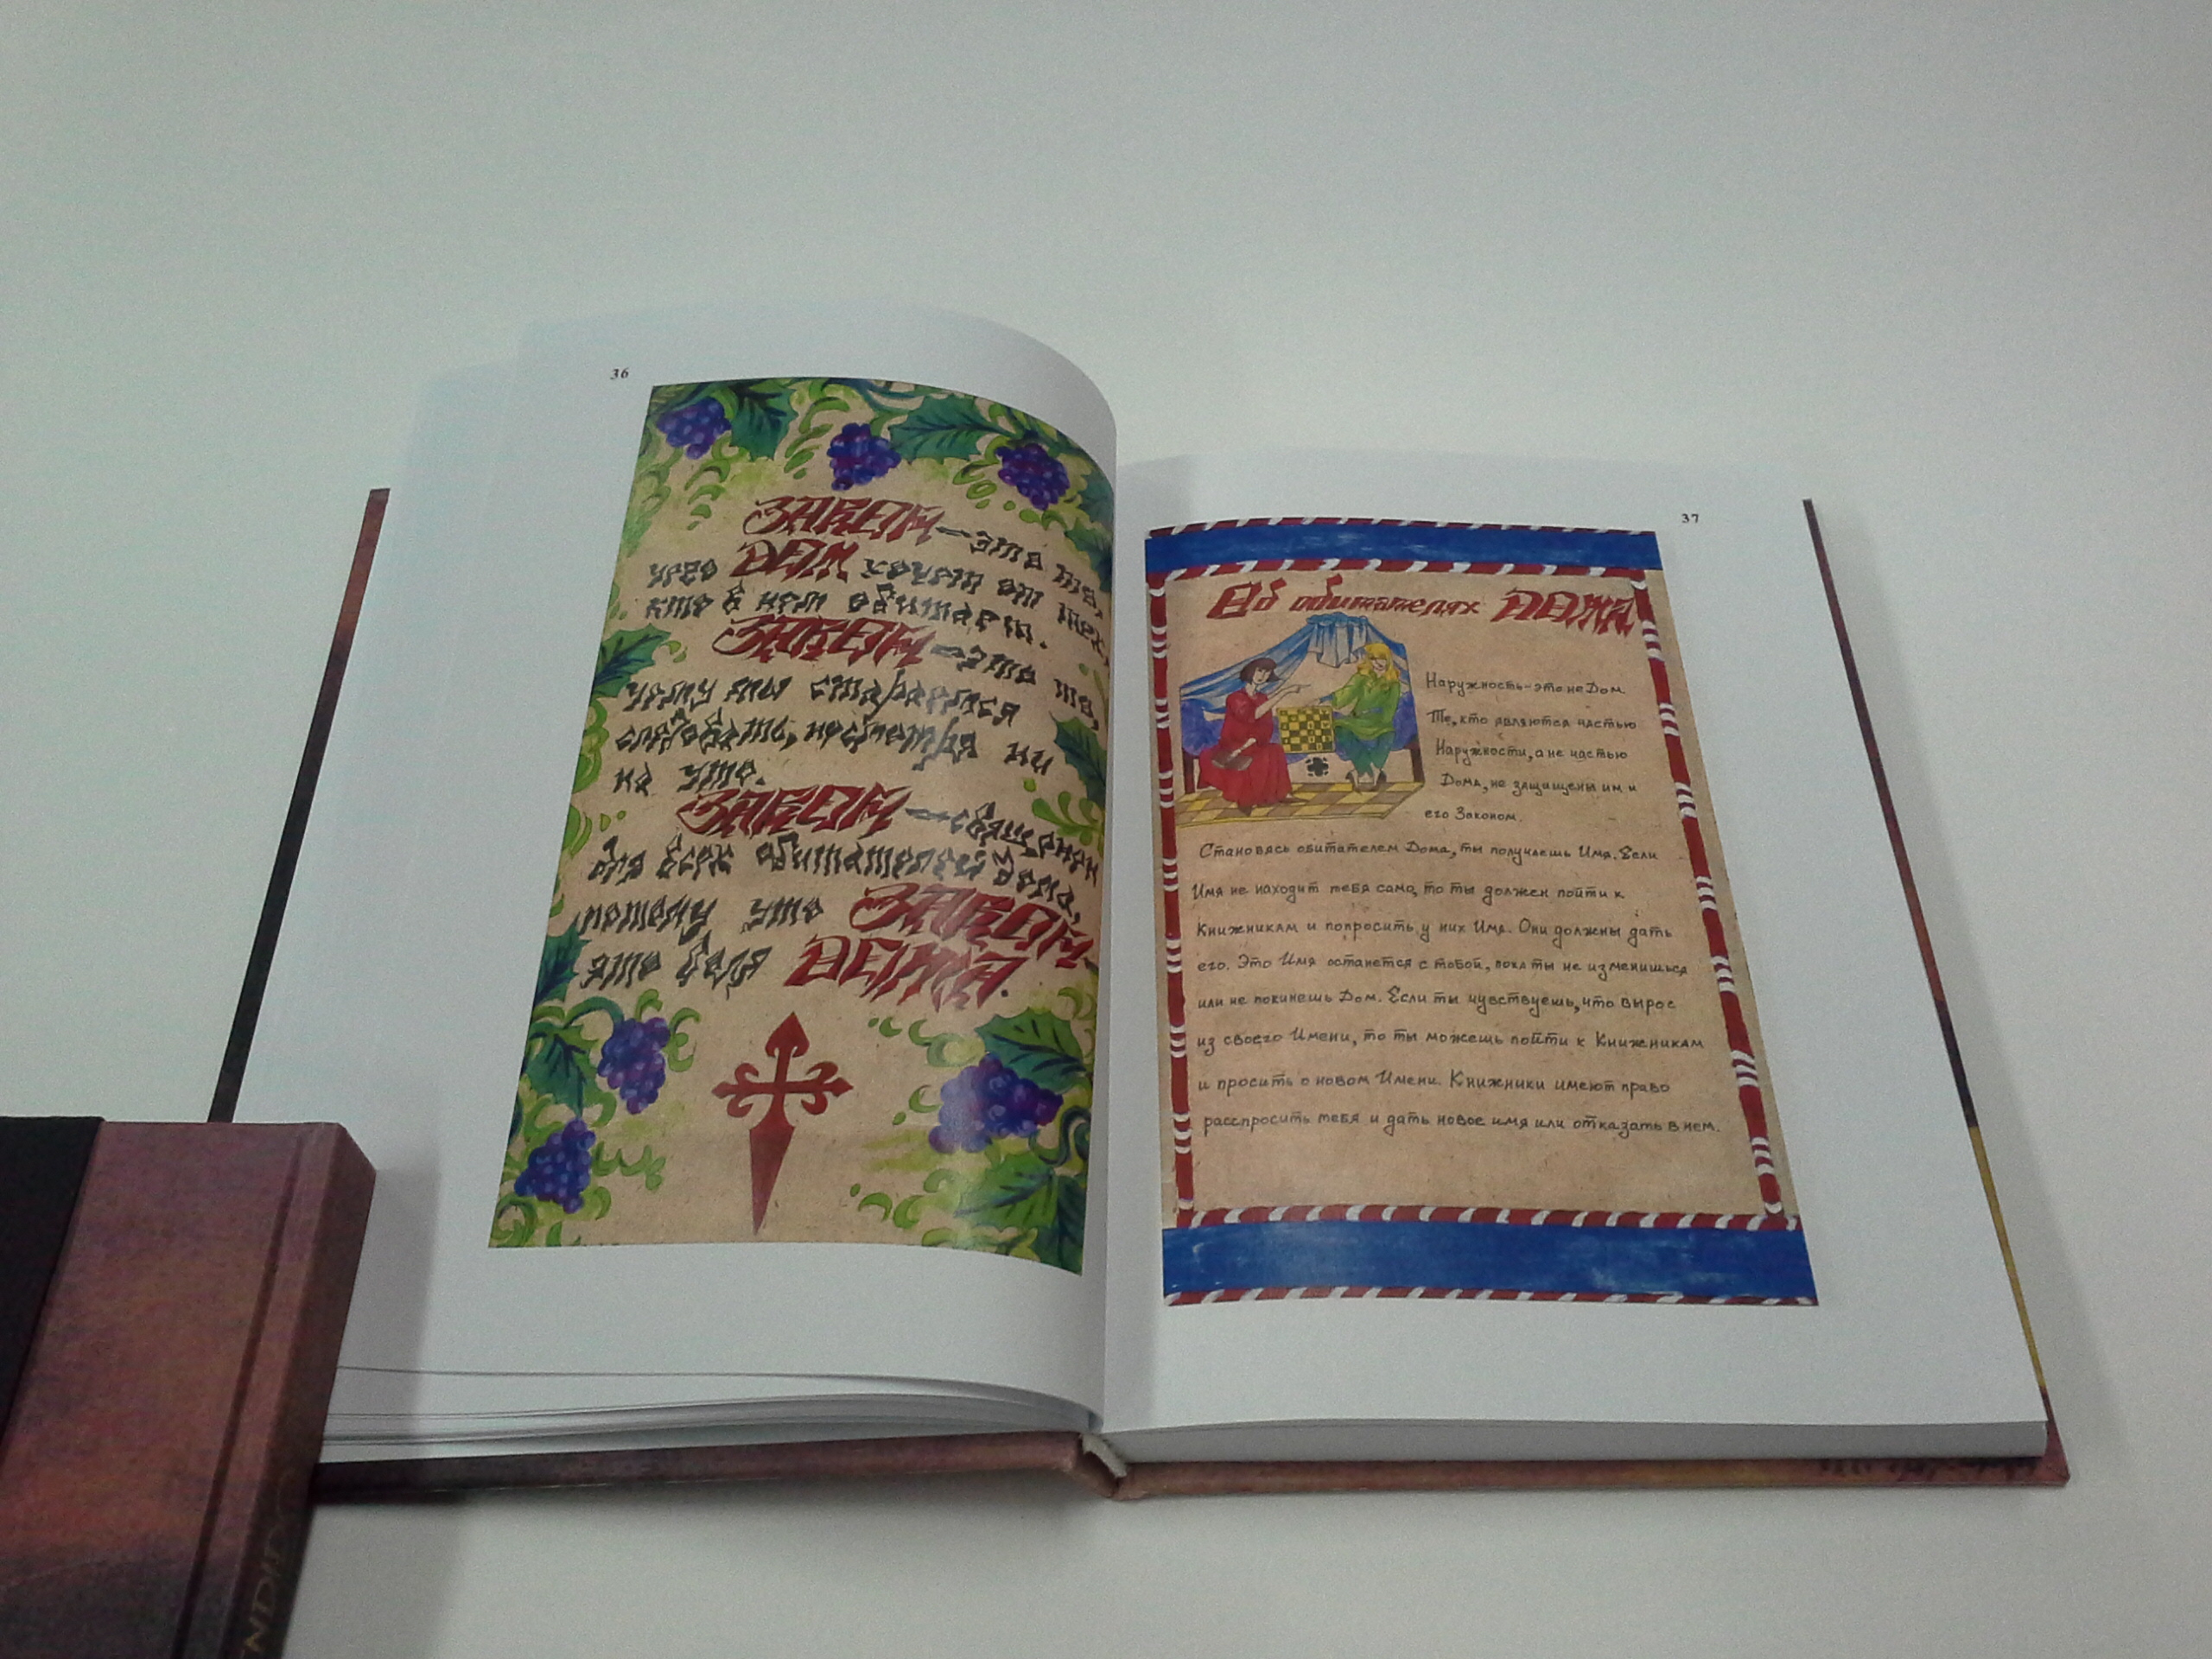 36
ЗАКОН — это то,
чего ДОМ хочет от тех,
кто в нем обитает.
ЗАКОН — это то,
чему ты стараешься
следовать, несмотря ни
на что.
ЗАКОН — священен
для всех обитателей Дома,
потому что ЗАКОН-
это воля ДОМА.
37
Об обитателях ДОМА
Наружность-это не Дом.
Те, кто являются частью
Наружности, а не частью
Дома, не защищены им и
его Законом.
Становясь обитателем Дома, ты получаешь Имя. Если
Имя не находит тебя само, то ты должен пойти к
Книжникам и попросить у них Имя. Они должны дать
его. Это Имя останется с тобой, пока ты не изменишься
или не покинешь Дом. Если ты чувствуешь, что вырос
из своего Имени, то ты можешь пойти к Книжникам
и просить о новом Имени. Книжники имеют право
расспросить тебя и дать новое имя или отказать в нем.